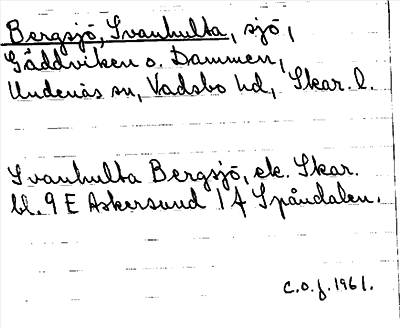 Bergsjö, Svanhulta, sjö,
Gäddviken o. Dammen,
Undenäs sn, Vadsbo hd, Skar. l.
Svanhulta Bergsjö, ek. Skar.
bl. 9 E Askersund 1 f Spåndalen.
C.O.f. 1961.